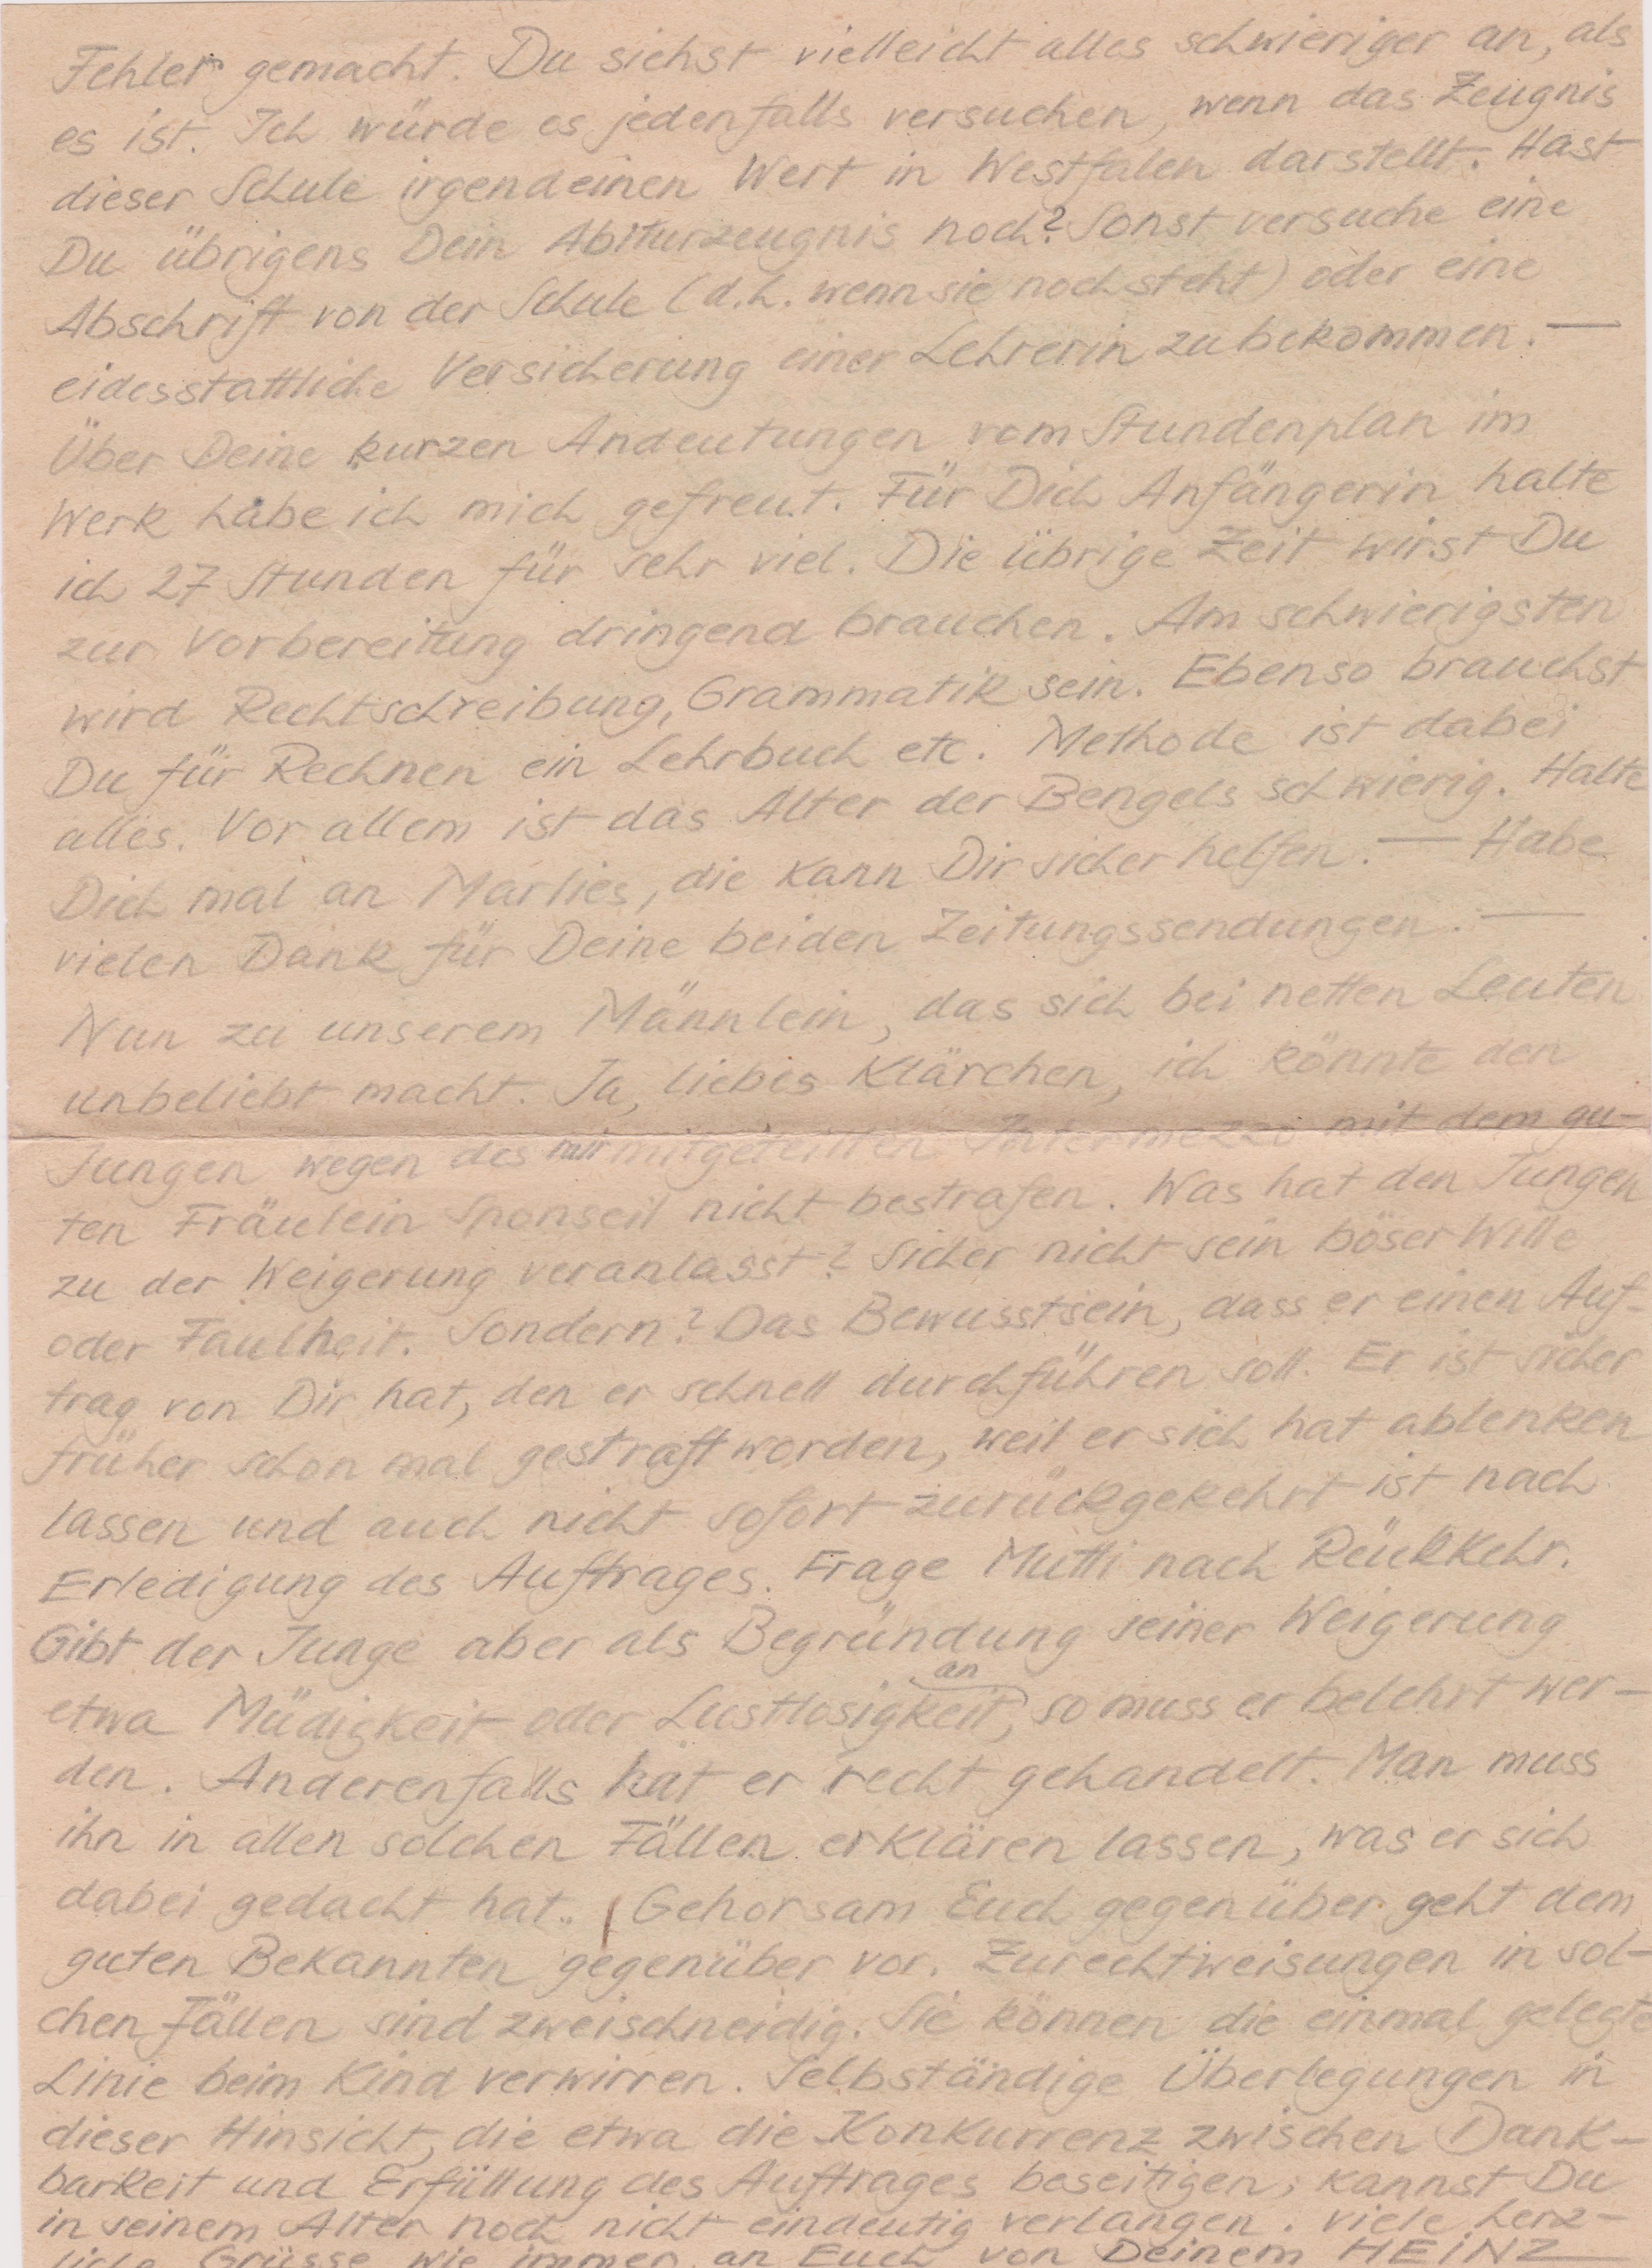 Fehler gemacht. Du siehst vielleicht alles schwieriger an, als
es ist. Ich würde es jedenfalls versuchen, wenn das Zeugnis
dieser Schule irgendeinen Wert in Westfalen darstellt. Hast
Du übrigens Dein Abiturzeugnis noch? Sonst versuche eine
Abschrift von der Schule (d.h. wenn sie noch steht) oder eine
eidesstattliche Versicherung einer Lehrerin zu bekommen. —
Über Deine kurzen Andeutungen vom Stundenplan im
Werk habe ich mich gefreut. Für Dich Anfängerin halte
ich 27 Stunden für sehr viel. Die übrige Zeit wirst Du
zur Vorbereitung dringend brauchen. Am schwierigsten
wird Rechtschreibung, Grammatik sein. Ebenso brauchst
Du für Rechnen ein Lehrbuch etc. Methode ist dabei
alles. Vor allem ist das Alter der Bengels schwierig. Halte
Dich mal an Marlies, die kann Dir sicher helfen. — Habe
vielen Dank für Deine beiden Zeitungssendungen. —
Nun zu unserem Männlein, das sich bei netten Leuten
unbeliebt macht. Ja, liebes Klärchen, ich könnte den
Jungen wegen des mir mitgeteilten Intermezzo mit dem gu-
ten Fräulein Sponseil nicht bestrafen. Was hat den Jungen
zu der Weigerung veranlasst? Sicher nicht sein böser Wille
oder Faulheit. Sondern? Das Bewusstsein, dass er einen Auf-
trag von Dir hat, den er schnell durchführen soll. Er ist sicher
früher schon mal gestraft worden, weil er sich hat ablenken
lassen und auch nicht sofort zurückgekehrt ist nach
Erledigung des Auftrages. Frage Mutti nach Rückkehr.
Gibt der Junge aber als Begründung seiner Weigerung
etwa Müdigkeit oder Lustlosigkeit an, so muss er belehrt wer-
den. Anderenfalls hat er recht gehandelt. Man muss
ihn in allen solchen Fällen erklären lassen, was er sich
dabei gedacht hat. | Gehorsam Euch gegenüber geht dem
guten Bekannten gegenüber vor. Zurechtweisungen in sol-
chen Fällen sind zweischneidig. Sie können die einmal gelegte
Linie beim Kind verwirren. Selbständige Überlegungen in
dieser Hinsicht, die etwa die Konkurrenz zwischen Dank-
barkeit und Erfüllung des Auftrages beseitigen, kannst Du
in seinem Alter noch nicht eindeutig verlangen. Viele herz-
liche Grüsse wie immer an Euch von Deinem HEINZ